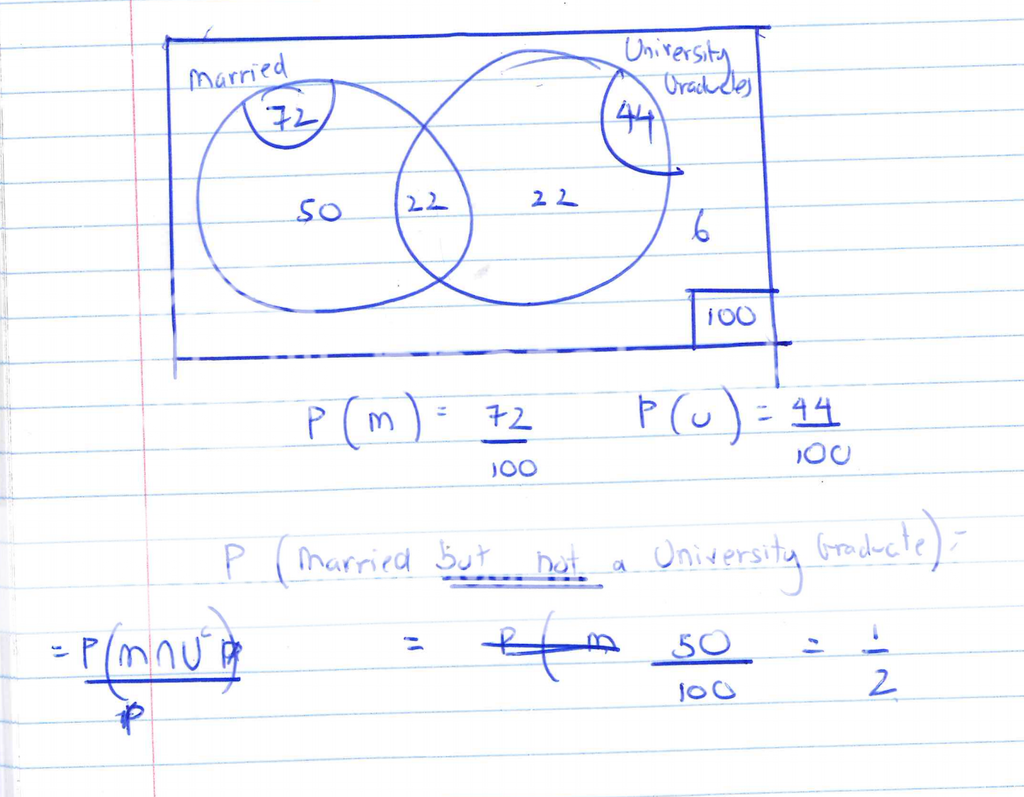 Married
University
Graduates
72
44
50 22 22
6
100
P(m) = 72/100 P(U) = 44/100
P (Married but not a University Graduate) =
= P(m∩Uᶜ) = 50/100 = 1/2